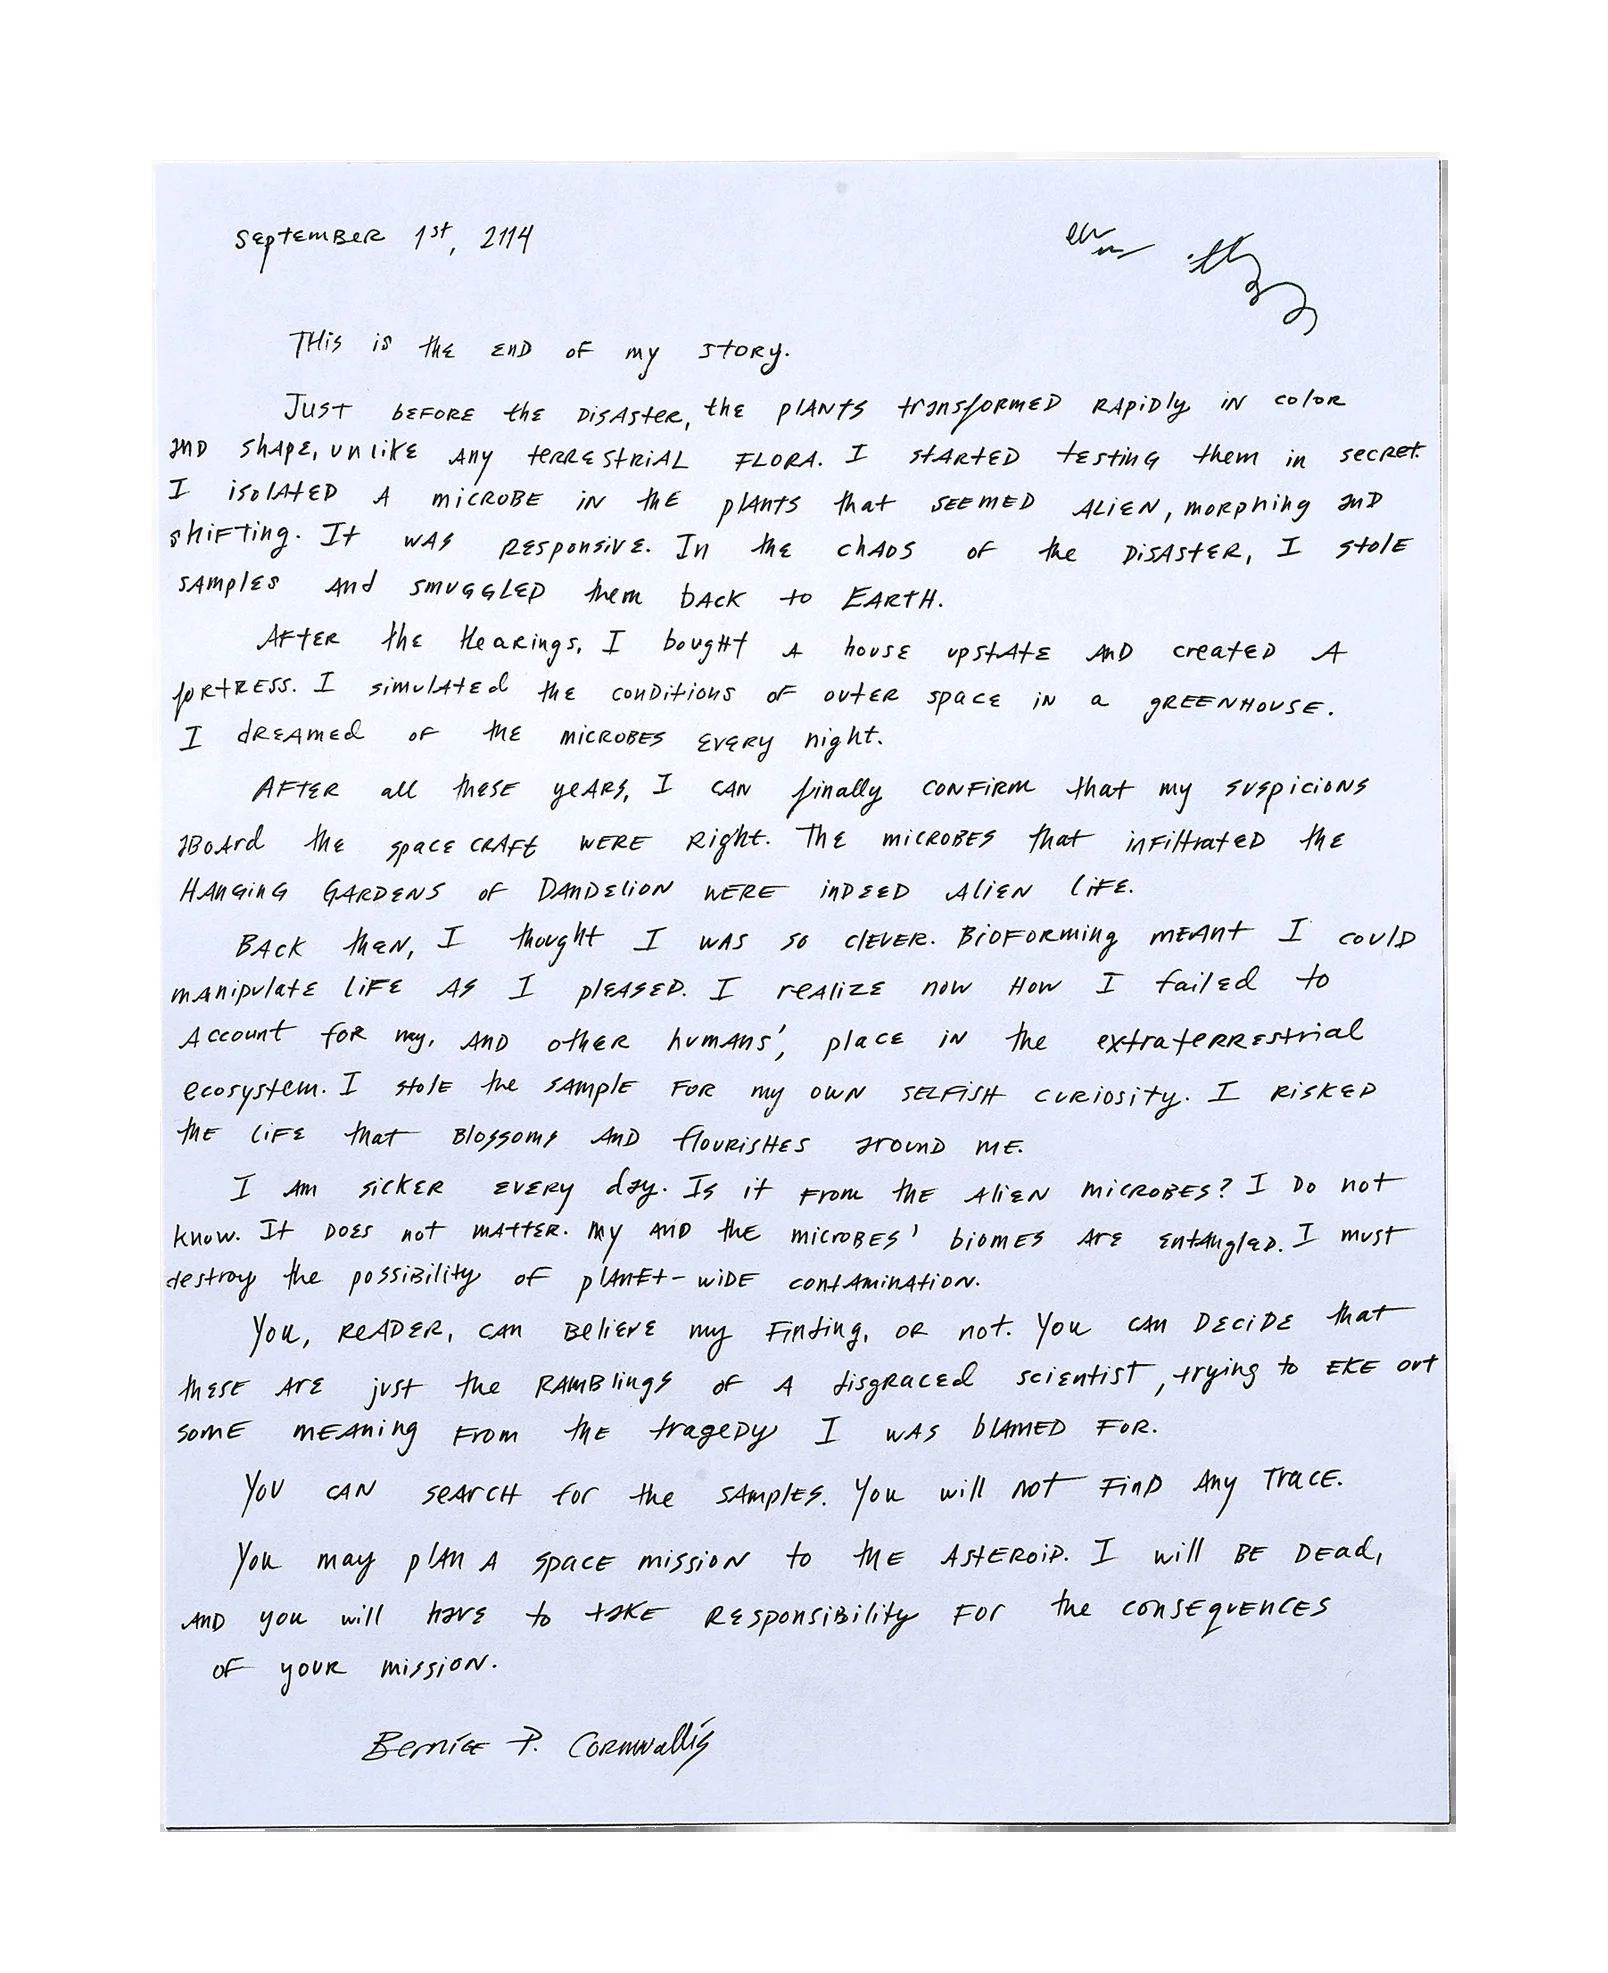 September 1st, 2114
This is the end of my story.
Just before the disaster, the plants transformed rapidly in color
and shape, unlike any terrestrial flora. I started testing them in secret.
I isolated a microbe in the plants that seemed alien, morphing and
shifting. It was responsive. In the chaos of the disaster, I stole
samples and smuggled them back to Earth.
After the hearings, I bought a house upstate and created a
fortress. I simulated the conditions of outer space in a greenhouse.
I dreamed of the microbes every night.
After all these years, I can finally confirm that my suspicions
aboard the spacecraft were right. The microbes that infiltrated the
Hanging Gardens of Dandelion were indeed alien life.
Back then, I thought I was so clever. Bioforming meant I could
manipulate life as I pleased. I realize now how I failed to
account for my, and other humans', place in the extraterrestrial
ecosystem. I stole the sample for my own selfish curiosity. I risked
the life that blossoms and flourishes around me.
I am sicker every day. Is it from the alien microbes? I do not
know. It does not matter. My and the microbes' biomes are entangled. I must
destroy the possibility of planet-wide contamination.
You, reader, can believe my finding, or not. You can decide that
these are just the ramblings of a disgraced scientist, trying to eke out
some meaning from the tragedy I was blamed for.
You can search for the samples. You will not find any trace.
You may plan a space mission to the asteroid. I will be dead,
and you will have to take responsibility for the consequences
of your mission.
Bernice P. Cornwallis